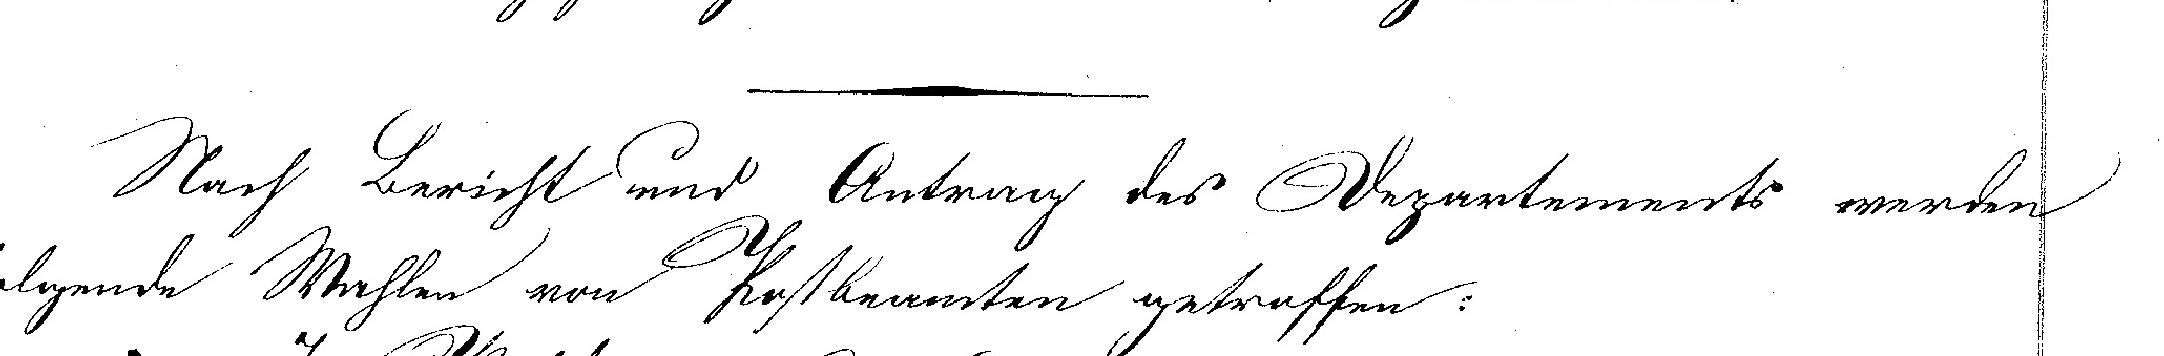 Nach Bericht und Antrag des Departements werden
folgende Wahlen von Postbeamten getroffen: